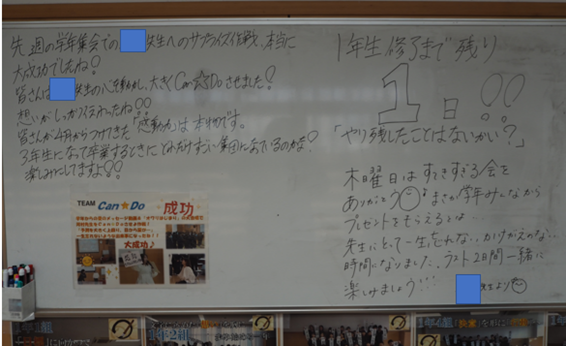 先週の学年集会での 先生へのサプライズ作戦、本当に
大成功でしたね!!
皆さんは 先生の心を動かし、大きくCan☆Doさせました!
想いがしっかり伝わったね!!
皆さんが4月からつけてきた「感動力」は本物です。
3年生になって卒業するときに どれだけすごい集団になっているのかな?
楽しみにしてますよ!!
1年生修了まで残り
1日!!
「やり残したことはないかい?」
木曜日はすてきすぎる会を
ありがとう まさか学年みんなから
プレゼントをもらえるとは
先生にとって一生忘れない、かけがえのない
時間になりました。ラスト2日間一緒に
楽しみましょう
先生より
TEAM Can☆Do 成功
大成功♪